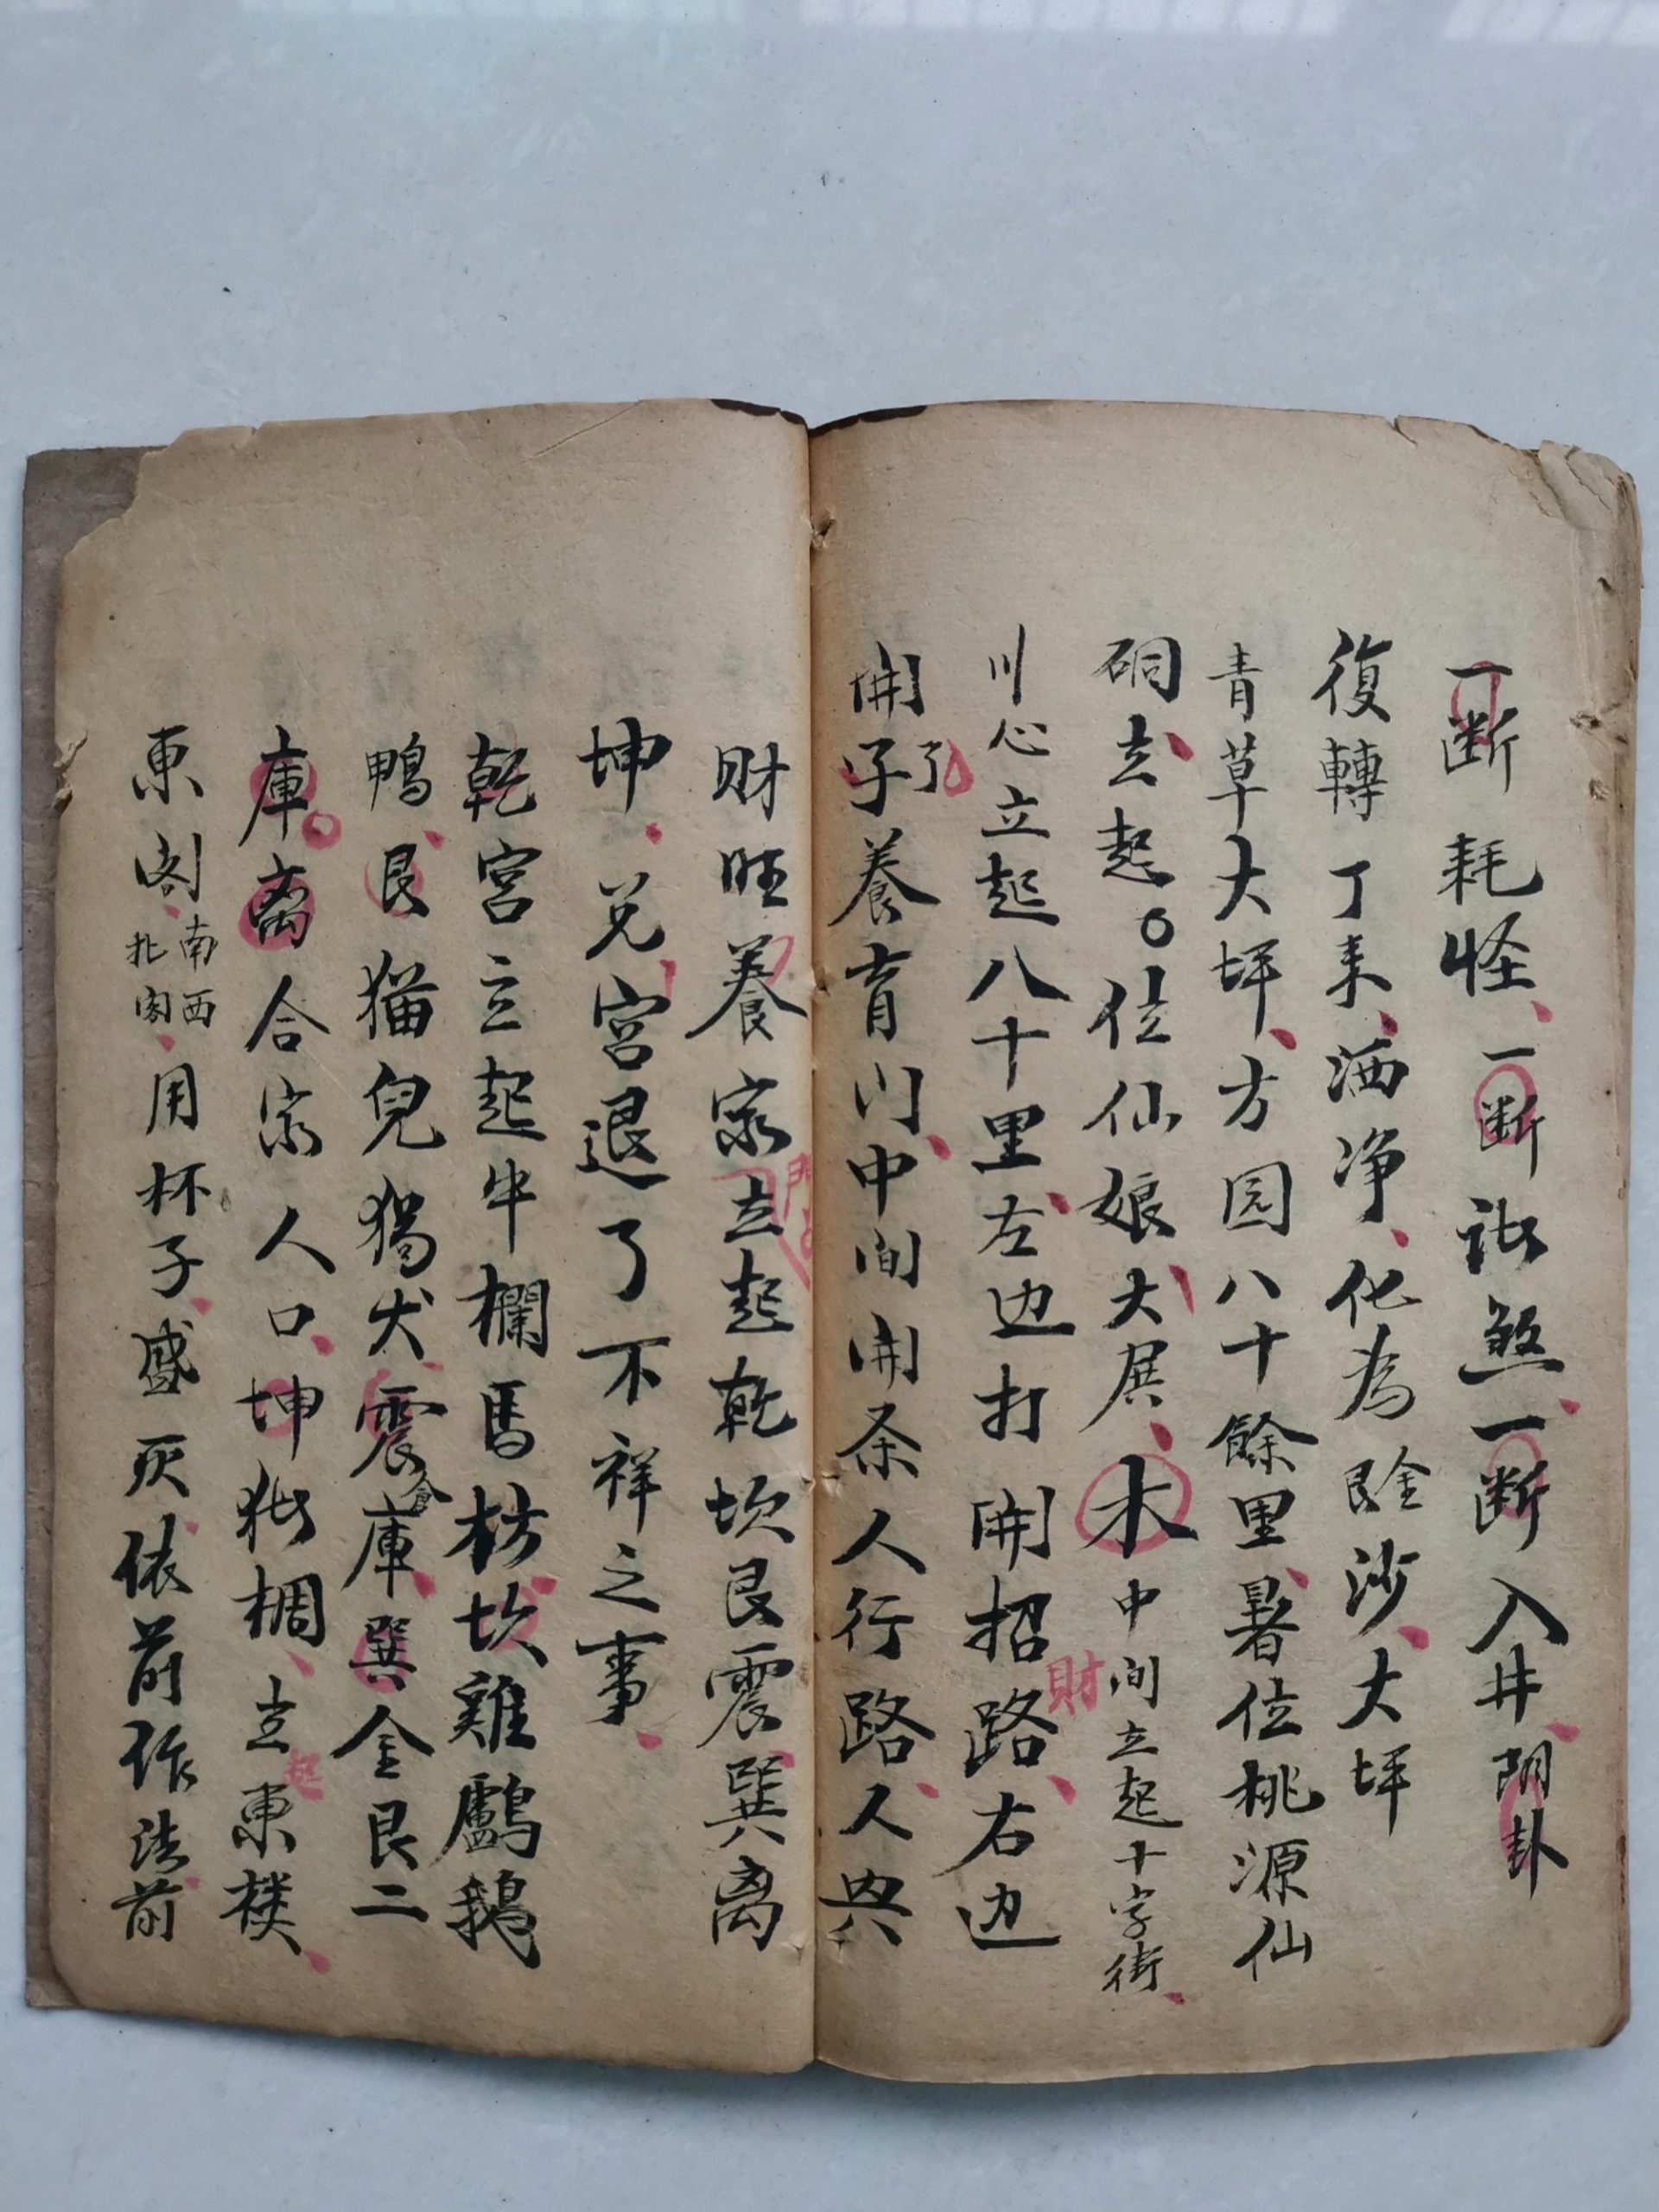 一断耗怪、一断訛煞、一断入井、阴卦
復轉了来、洒净、化為𨹧沙、大坪
青草大坪、方园八十餘里、暑位桃源仙
硐去、起。位仙娘大展、木中间立起十字街、
川心立起八十里、左边打開招財路、右边
開了子養育门、中间開条人行路、人興
財旺養家門立起乾坎艮震巽离
坤、兑宮退了不祥之事、
乾宮立起牛欄馬枋、坎雞鸕鵝
鴨、艮猫兒獨犬、震倉庫、巽金艮二
庫。离合家人口、坤㹴椆、立起東楼、
東阁、南西北阁、用杯子、盛灰依前作法前